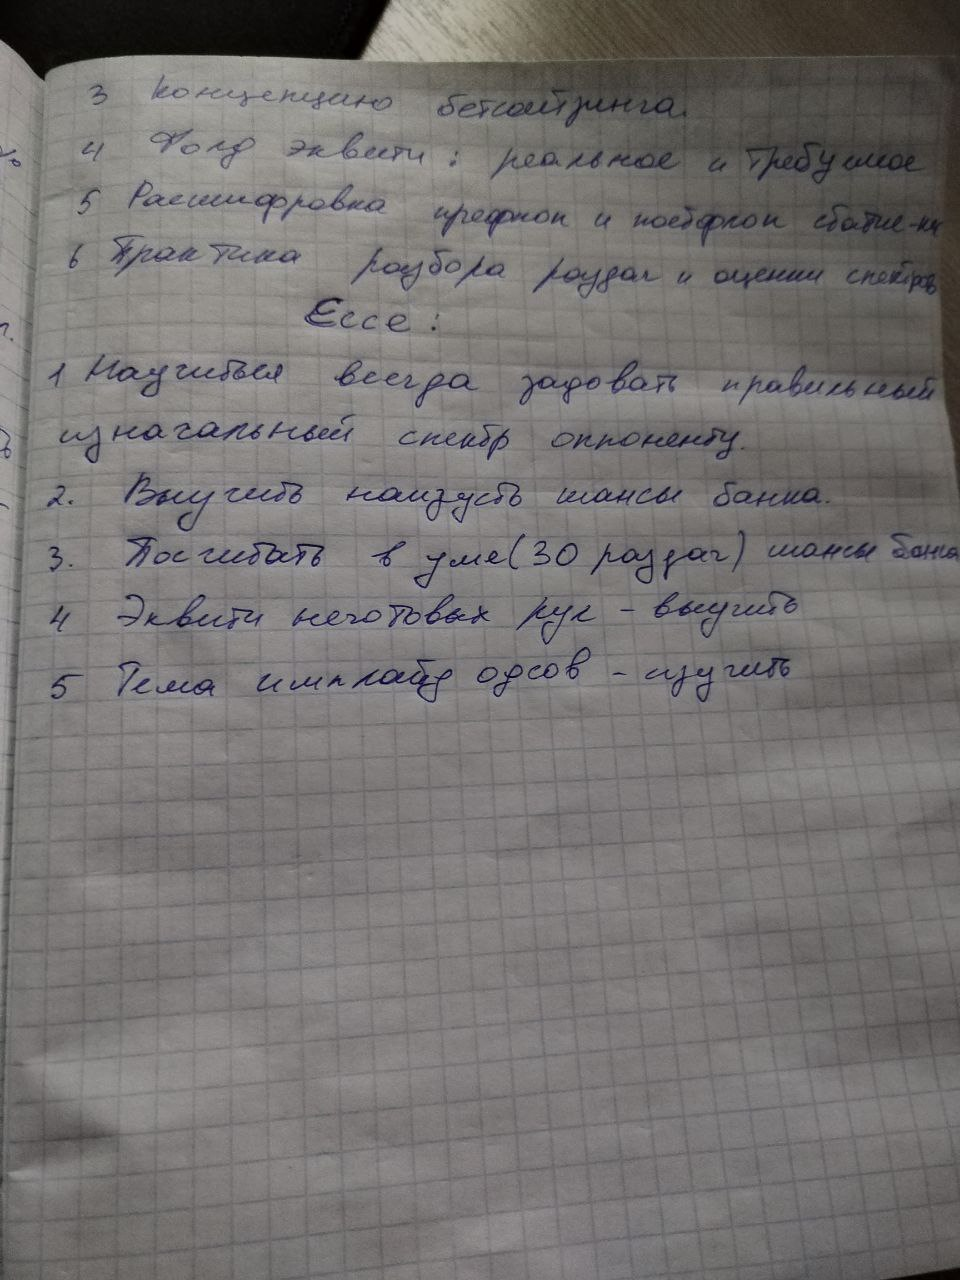 3 концепцию бетсайзинга.
4 Фолд эквити: реальное и требуемое
5 Расшифровка префлоп и постфлоп
6 Практика разбора раздач и оценки спектров
Ессе:
1 Научиться всегда задовать правильный
изначальный спектр оппоненту.
2. Выучить наизусть шансы банка.
3. Посчитать в уме (30 раздач) шансы банка
4 Эквити неготовых рук - выучить
5 Тема имплайд одсов - изучить